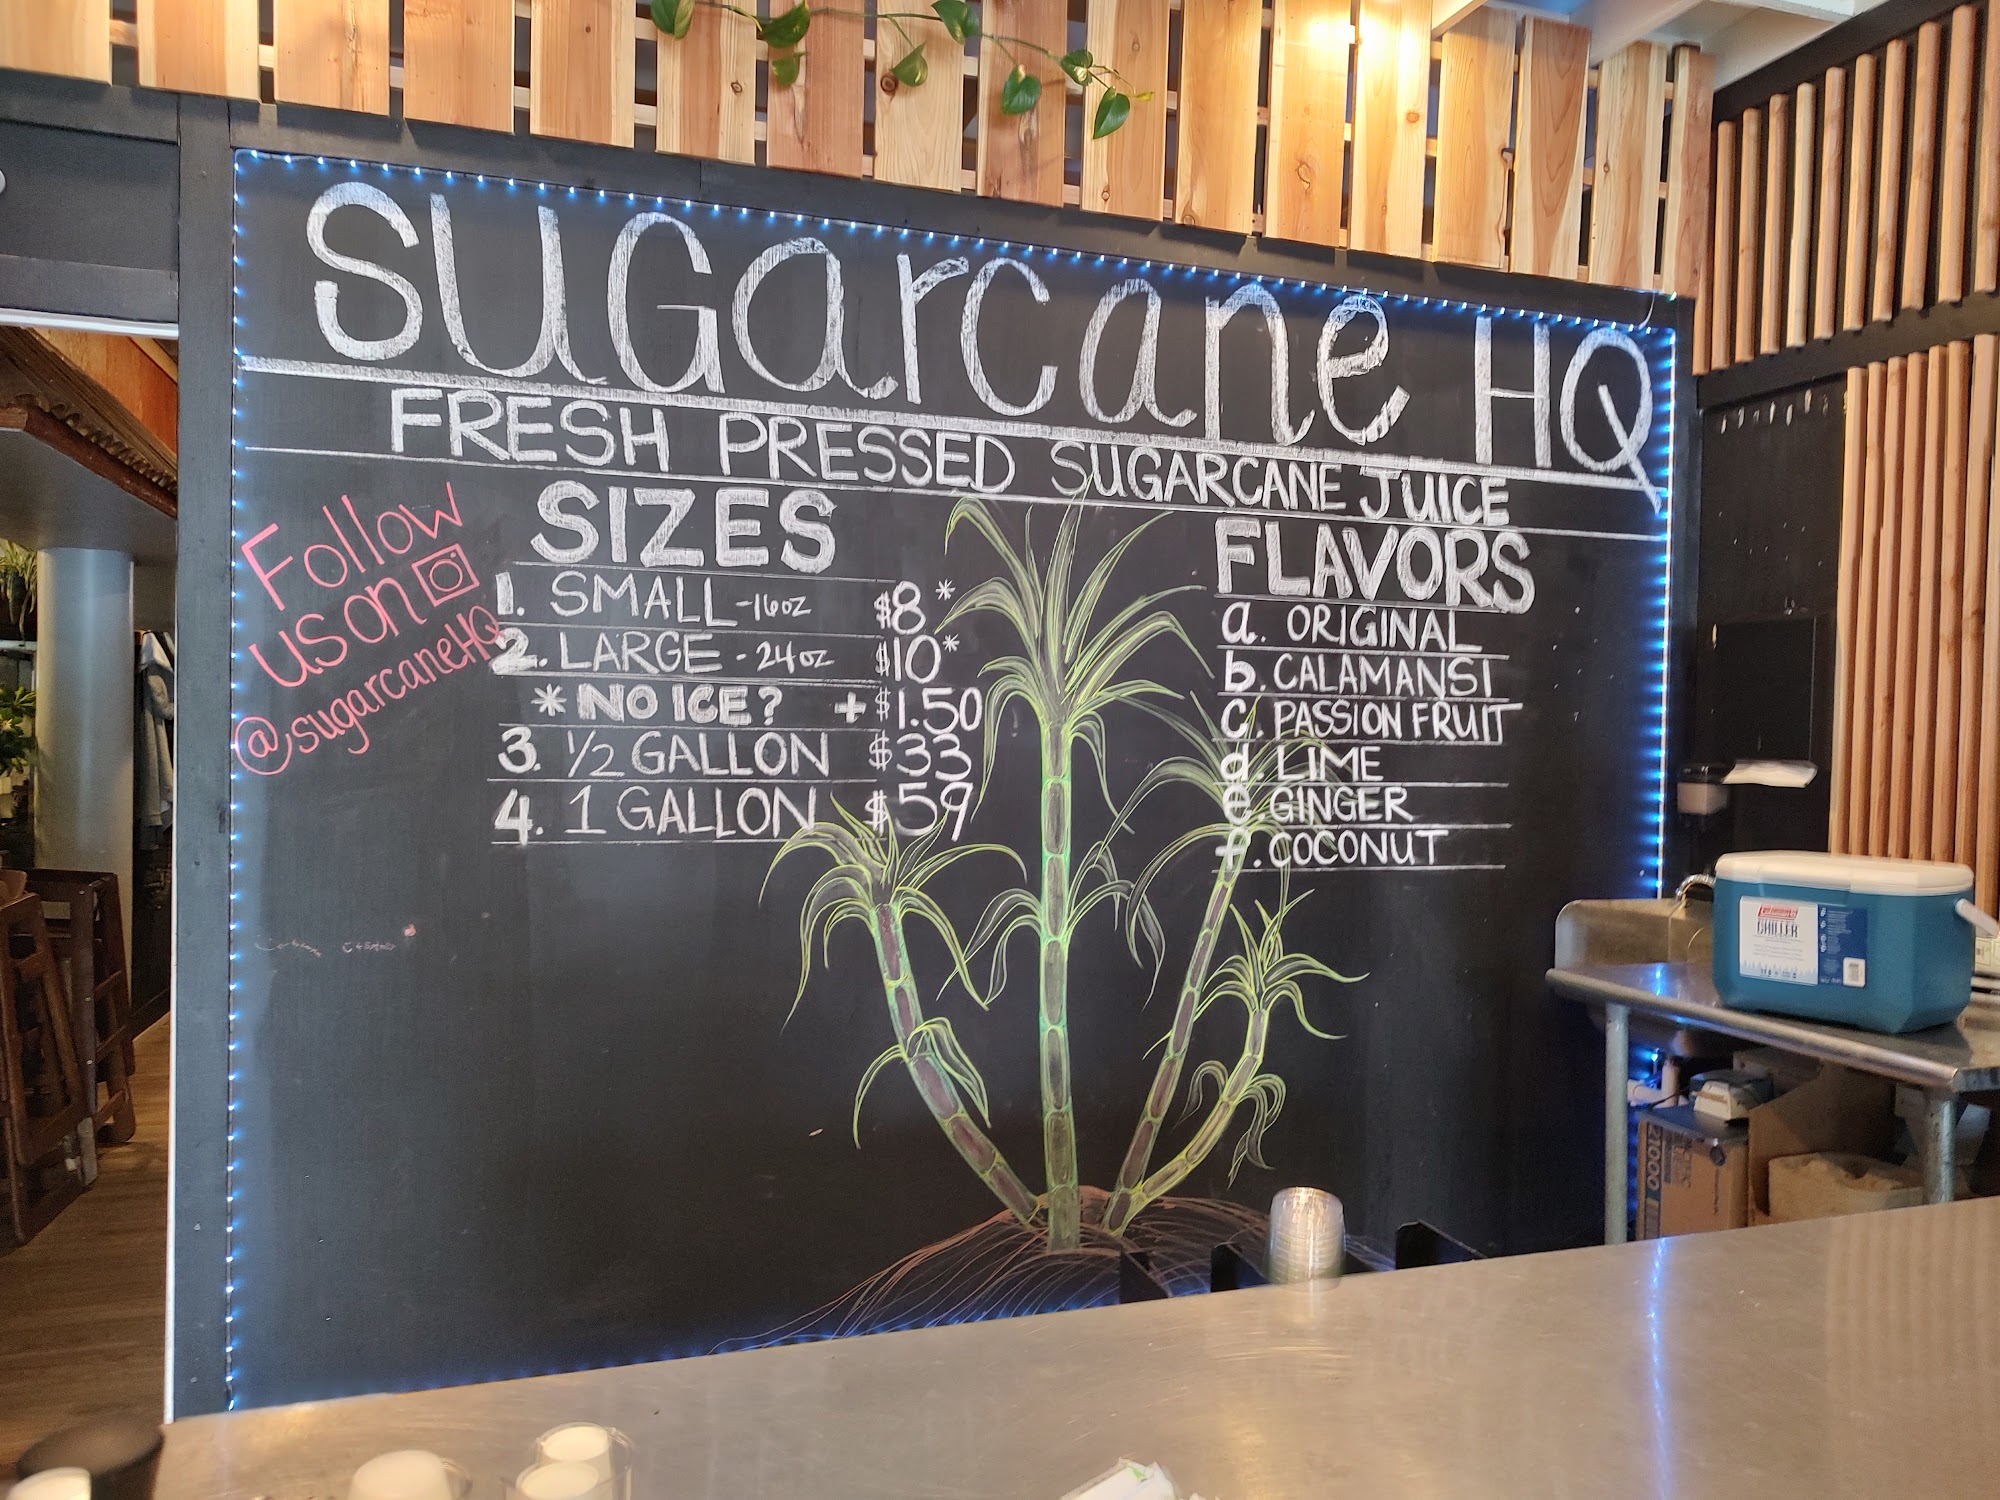 sugarcane HQ
FRESH PRESSED SUGARCANE JUICE
Follow
us on
@sugarcaneHQ
SIZES
1. SMALL -16oz $8*
2. LARGE - 24oz $10*
* NO ICE? + $1.50
3. 1/2 GALLON $33
4. 1 GALLON $59
FLAVORS
a. ORIGINAL
b. CALAMANSI
c. PASSION FRUIT
d. LIME
e. GINGER
f. COCONUT
CHILLER
2000